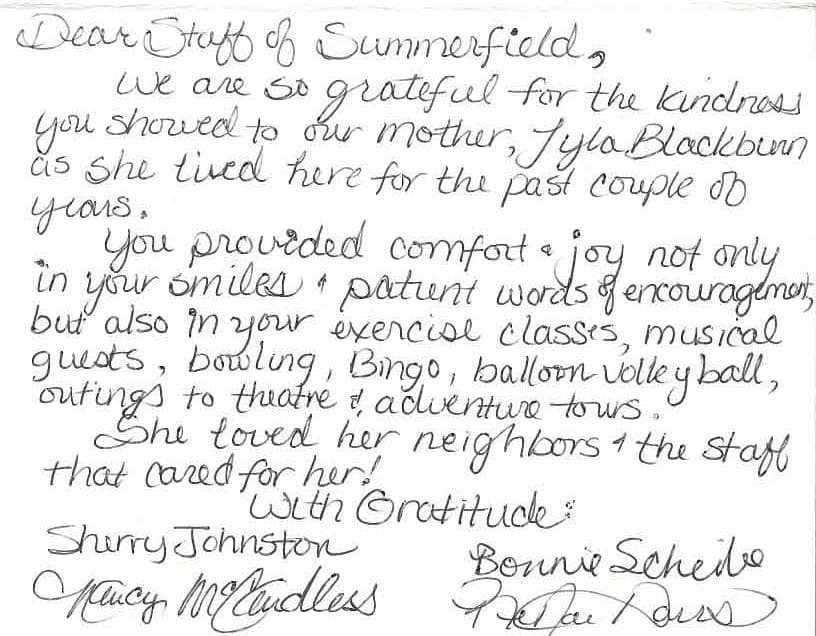 Dear Staff of Summerfield,
We are so grateful for the kindness
you showed to our mother, Lyla Blackburn
as she lived here for the past couple of
years.
You provided comfort & joy not only
in your smiles & patient words of encouragement,
but also in your exercise classes, musical
guests, bowling, Bingo, balloon volleyball,
outings to theatre & adventure tours.
She loved her neighbors & the staff
that cared for her!
With Gratitude:
Sherry Johnston
Bonnie Scheibe
Nancy McCandless